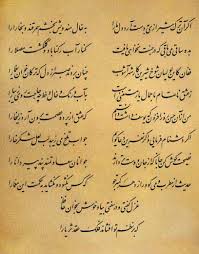 اگر آن ترک شیرازی بدست آرد دل ما را به خال هندویش بخشم سمرقند و بخارا را
بده ساقی می باقی که در جنت نخواهی یافت کنار آب رکناباد و گلگشت مصلا را
فغان کاین لولیان شوخ شیرین کار شهر آشوب چنان بردند صبر از دل که ترکان خوان یغما را
ز عشق ناتمام ما جمال یار مستغنی است به آب و رنگ و خال و خط چه حاجت روی زیبا را
من از آن حسن روز افزون که یوسف داشت دانستم که عشق از پرده عصمت برون آرد زلیخا را
اگر دشنام فرمایی و گر نفرین دعا گویم جواب تلخ می زیبد لب لعل شکر خا را
نصیحت گوش کن جانا که از جان دوست تر دارند جوانان سعادتمند پند پیر دانا را
حدیث از مطرب و می گو و راز دهر کمتر جو که کس نگشود و نگشاید به حکمت این معما را
غزل گفتی و در سفتی بیا و خوش بخوان حافظ
که بر نظم تو افشاند فلک عقد ثریا را